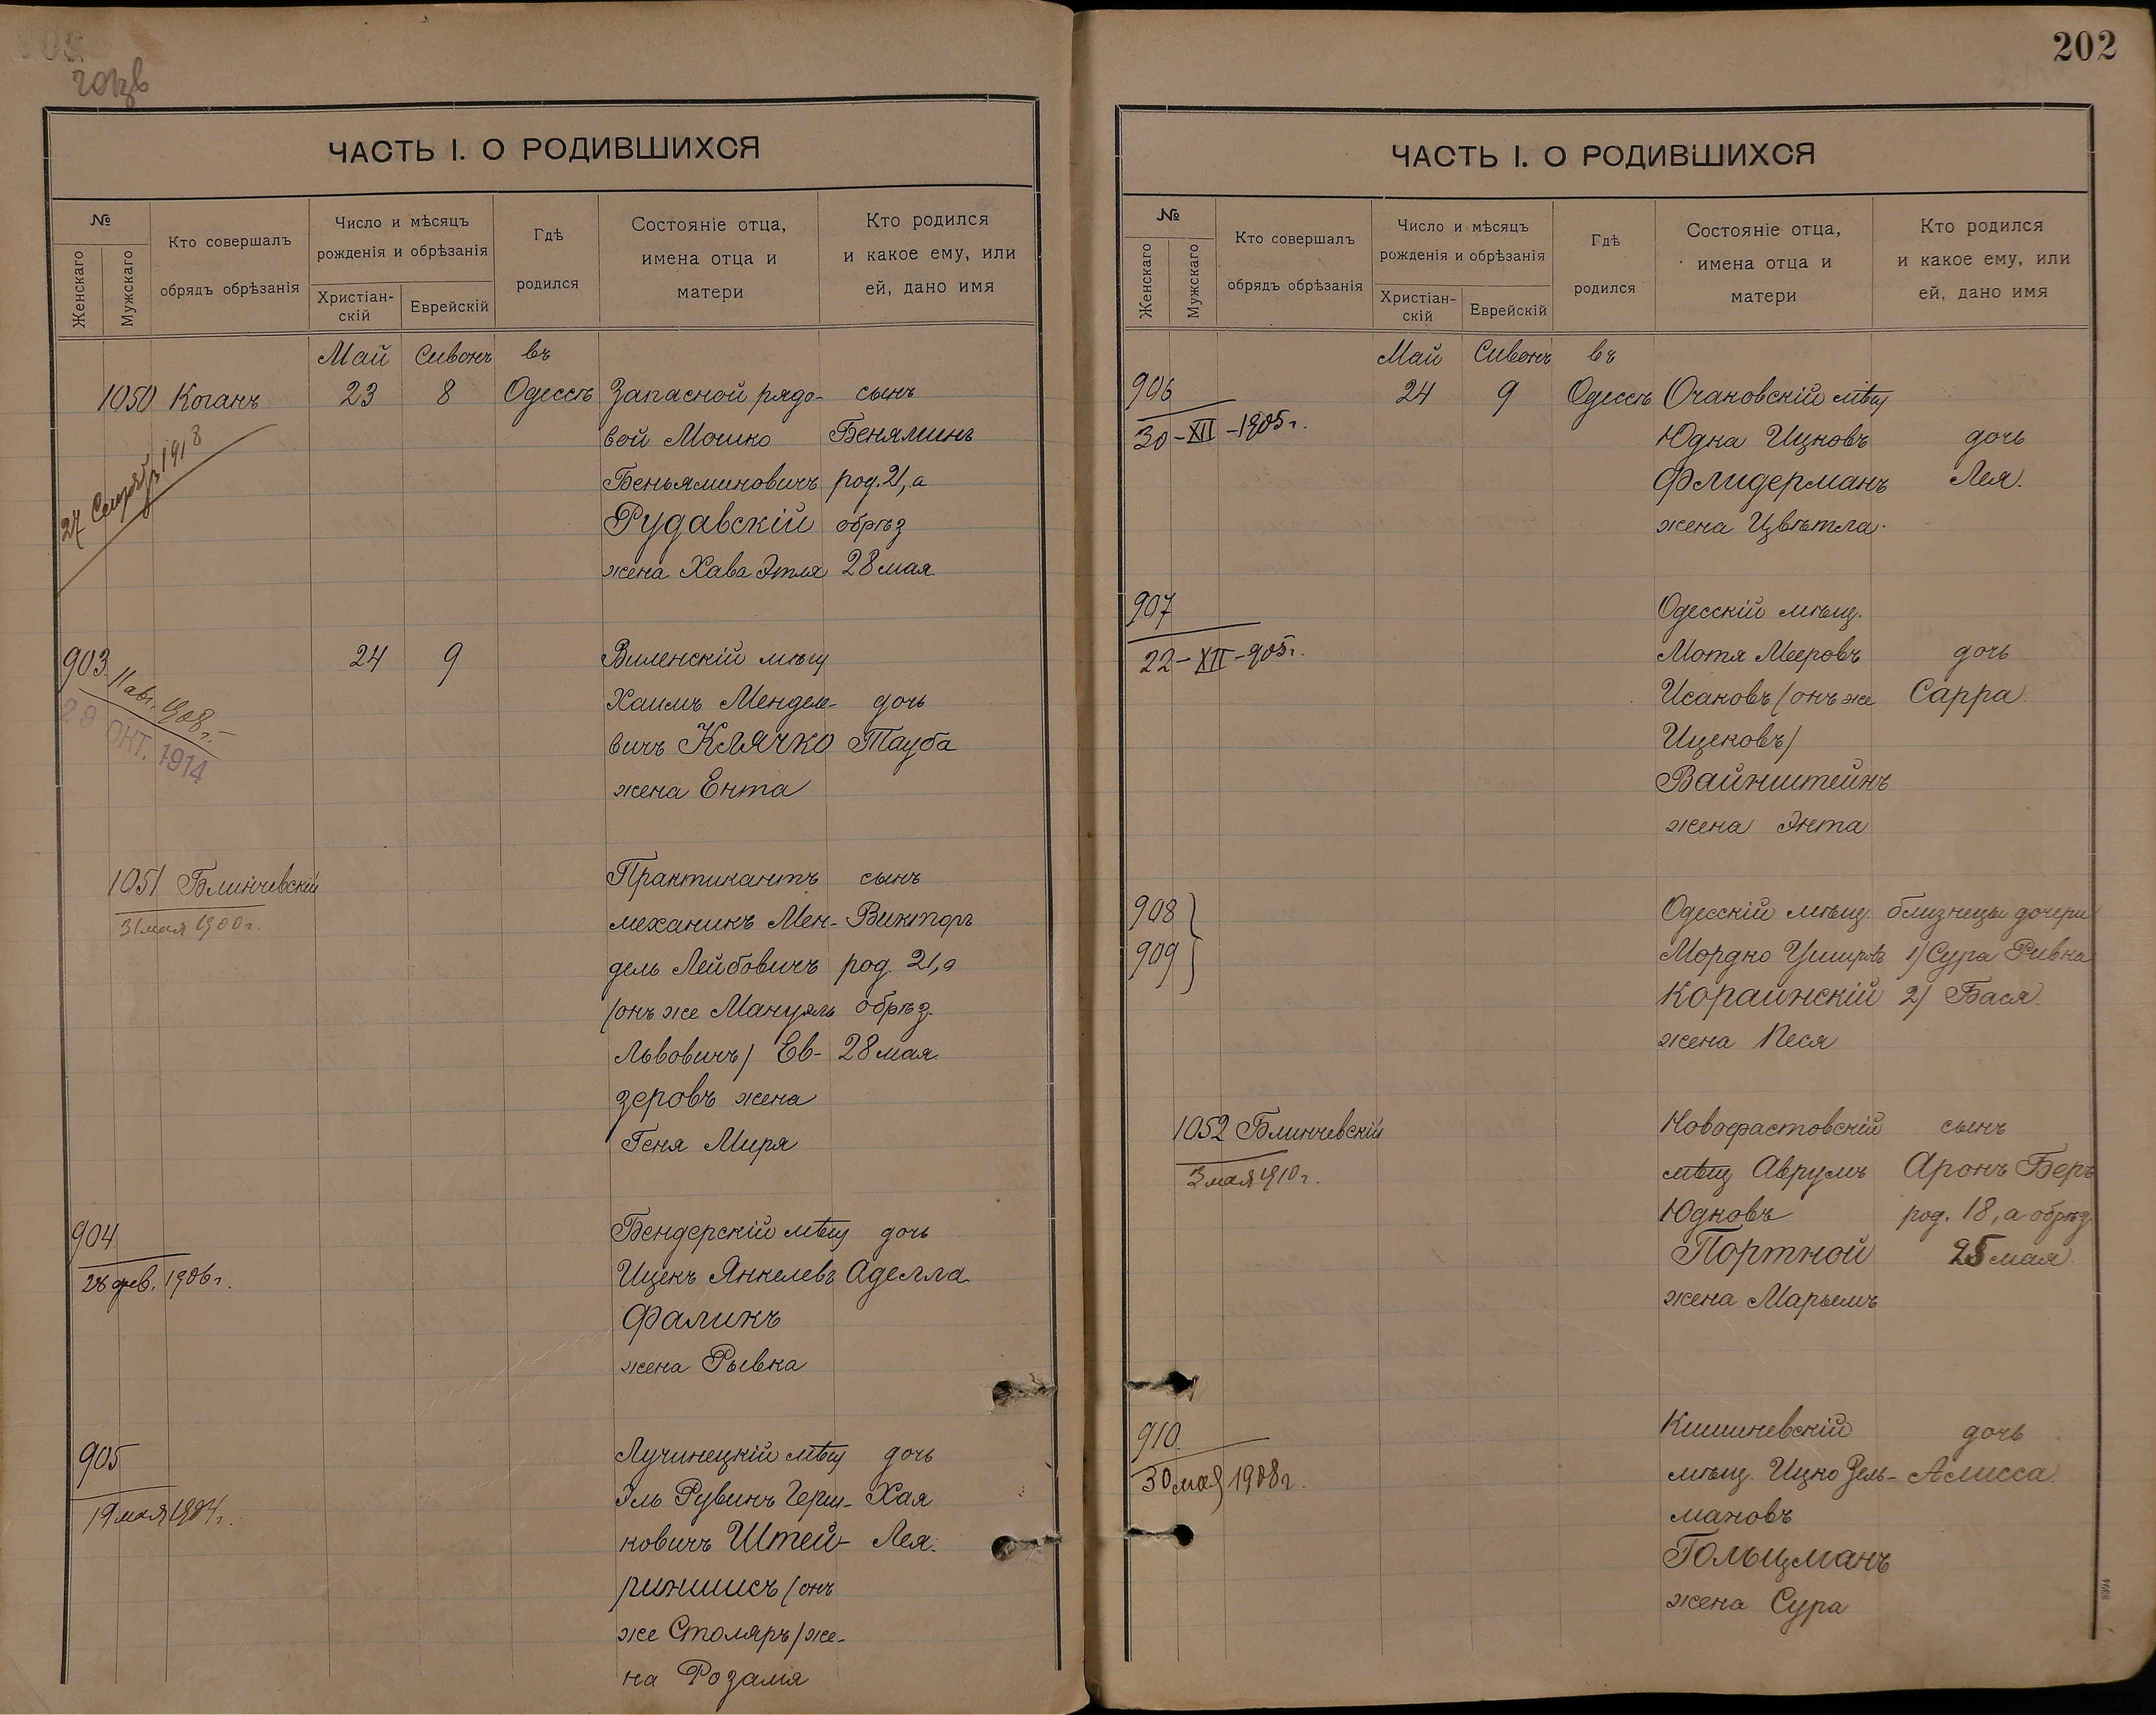 202
ЧАСТЬ I. О РОДИВШИХСЯ
№
Женскаго
Мужскаго
Кто совершалъ
обрядъ обрѣзанія
Число и мѣсяцъ
рожденія и обрѣзанія
Христіан-
скій
Еврейскій
Гдѣ
родился
Состояніе отца,
имена отца и
матери
Кто родился
и какое ему, или
ей, дано имя
Май Сивонъ въ
1050 Коганъ 23 8 Одессѣ Запасной рядо- сынъ
вой Мошко Беняминъ
Беньяминовичъ род. 21, а
Рудавскій обрѣз
жена Хава Этля 28 мая
1918
903 24 9 Виленскій мѣщ
11 авг. 1908 г.
29 ОКТ. 1914
Хаимъ Менделе- дочь
вичъ Клячко Тауба
жена Ента
1051 Блинчевскій Практикантъ сынъ
31 мая 1900 г.
механикъ Мен- Викторъ
дель Лейбовичъ род. 21, а
(онъ же Мануэль обрѣз.
Львовичъ) Ев- 28 мая
зеровъ жена
Геня Миря
904 Бендерскій мѣщ дочь
28 фев. 1906 г.
Ицекъ Янкелевъ Аделла
Фаликъ
жена Рывка
905 Лучинецкій мѣщ дочь
19 мая 1904 г.
Эль Рувинъ Герш- Хая
ковичъ Штей- Лея.
риншисъ (онъ
же Столяръ) же-
на Розалія
ЧАСТЬ I. О РОДИВШИХСЯ
№
Женскаго
Мужскаго
Кто совершалъ
обрядъ обрѣзанія
Число и мѣсяцъ
рожденія и обрѣзанія
Христіан-
скій
Еврейскій
Гдѣ
родился
Состояніе отца,
имена отца и
матери
Кто родился
и какое ему, или
ей, дано имя
Май Сивонъ въ
906 24 9 Одессѣ Очаковскій мѣщ
30-XII-1905 г.
Юдка Ицковъ дочь
Флидерманъ Лея.
жена Цвѣтла.
907 Одесскій мѣщ.
22-XII-905 г.
Мотя Мееровъ дочь
Исаковъ (онъ же Сарра.
Ицековъ)
Вайнштейнъ
жена Энта
908 Одесскій мѣщ. близнецы дочери
909 Мордко Ушеровъ 1) Сура Ривка
Кораинскій 2) Бася.
жена Песя
1052 Блинчевскій Новофастовскій сынъ
3 мая 1910 г.
мѣщ Аврумъ Аронъ Беръ
Юдковъ род. 18, а обрѣз.
Портной 25 мая.
жена Марьемъ
910 Кишиневскій дочь
30 мая 1908 г.
мѣщ. Ицко Зель- Алисса.
мановъ
Гольцманъ
жена Сура